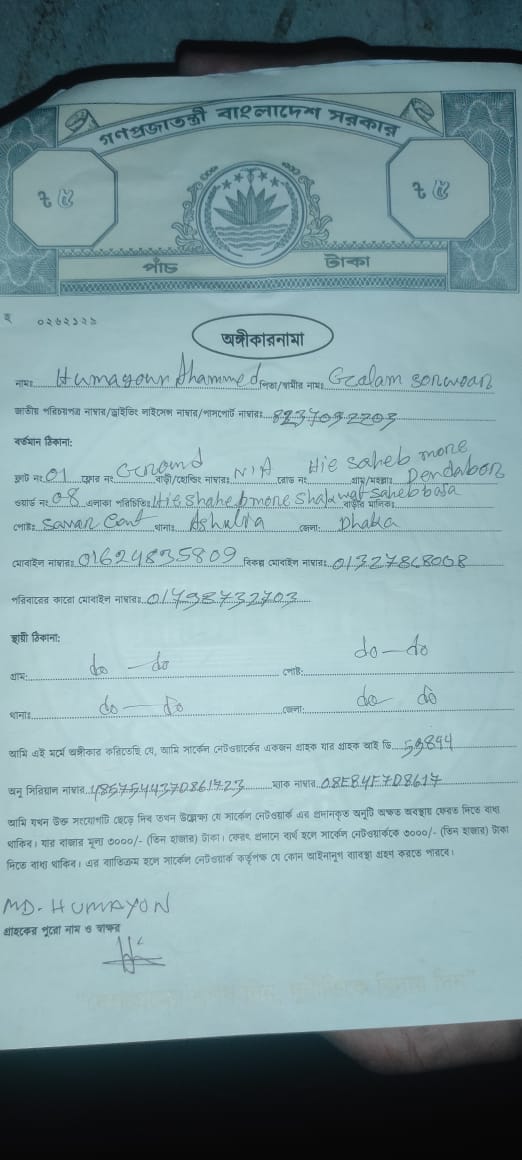 গণপ্রজাতন্ত্রী বাংলাদেশ সরকার
৳ ৫ ৳ ৫
পাঁচ টাকা
০২৬২১২৯
অঙ্গীকারনামা
নামঃ Humayoun Ahammed পিতা/স্বামীর নামঃ Goalam sorwoar
জাতীয় পরিচয়পত্র নাম্বার/ড্রাইভিং লাইসেন্স নাম্বার/পাসপোর্ট নাম্বারঃ 8237092203
বর্তমান ঠিকানা:
ফ্লাট নং 01 ফ্লোর নং Ground বাড়ী/হোল্ডিং নাম্বারঃ N/A রোড নং Hie saheb more গ্রাম/মহল্লাঃ Dendabor
ওয়ার্ড নং 08 এলাকা পরিচিতিঃ Hie shaheb more বাড়ীর মালিকঃ Shakawat saheb basa
পোষ্টঃ Savar Cant থানাঃ Ashulia জেলা: Dhaka
মোবাইল নাম্বারঃ 01624835809 বিকল্প মোবাইল নাম্বারঃ
পরিবারের কারো মোবাইল নাম্বারঃ 01798732703
স্থায়ী ঠিকানা:
গ্রাম: do - do পোষ্ট: do - do
থানাঃ do - do জেলা: do do
আমি এই মর্মে অঙ্গীকার করিতেছি যে, আমি সার্কেল নেটওয়ার্কের একজন গ্রাহক যার গ্রাহক আই ডি 59844
অনু সিরিয়াল নাম্বার 485754437D861723 ম্যাক নাম্বার 08E84F7D8617
আমি যখন উক্ত সংযোগটি ছেড়ে দিব তখন উল্লেখ্য যে সার্কেল নেটওয়ার্ক এর প্রদানকৃত অনুটি অক্ষত অবস্থায় ফেরত দিতে বাধ্য
থাকিব। যার বাজার মূল্য ৩০০০/- (তিন হাজার) টাকা। ফেরৎ প্রদানে ব্যর্থ হলে সার্কেল নেটওয়ার্ককে ৩০০০/- (তিন হাজার) টাকা
দিতে বাধ্য থাকিব। এর ব্যতিক্রম হলে সার্কেল নেটওয়ার্ক কর্তৃপক্ষ যে কোন আইনানুগ ব্যবস্থা গ্রহণ করতে পারবে।
MD. HUMAYON
গ্রাহকের পুরো নাম ও স্বাক্ষর